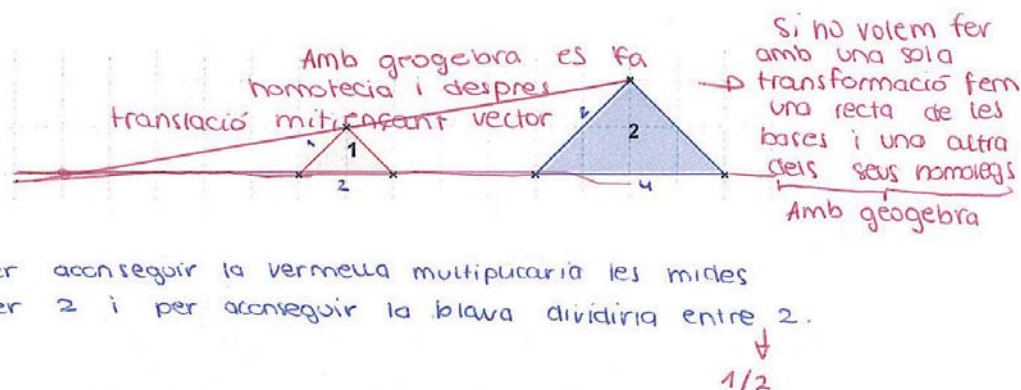 Amb grogebra es fa
homotecia i despres
translació mitjençant vector
Si no volem fer
amb una sola
transformació fem
una recta de les
bases i una altra
dels seus homolegs
Amb geogebra
1
2
2
4
er aconseguir la vermella multiplicaria les mides
er 2 i per aconseguir la blava dividiria entre 2.
1/2